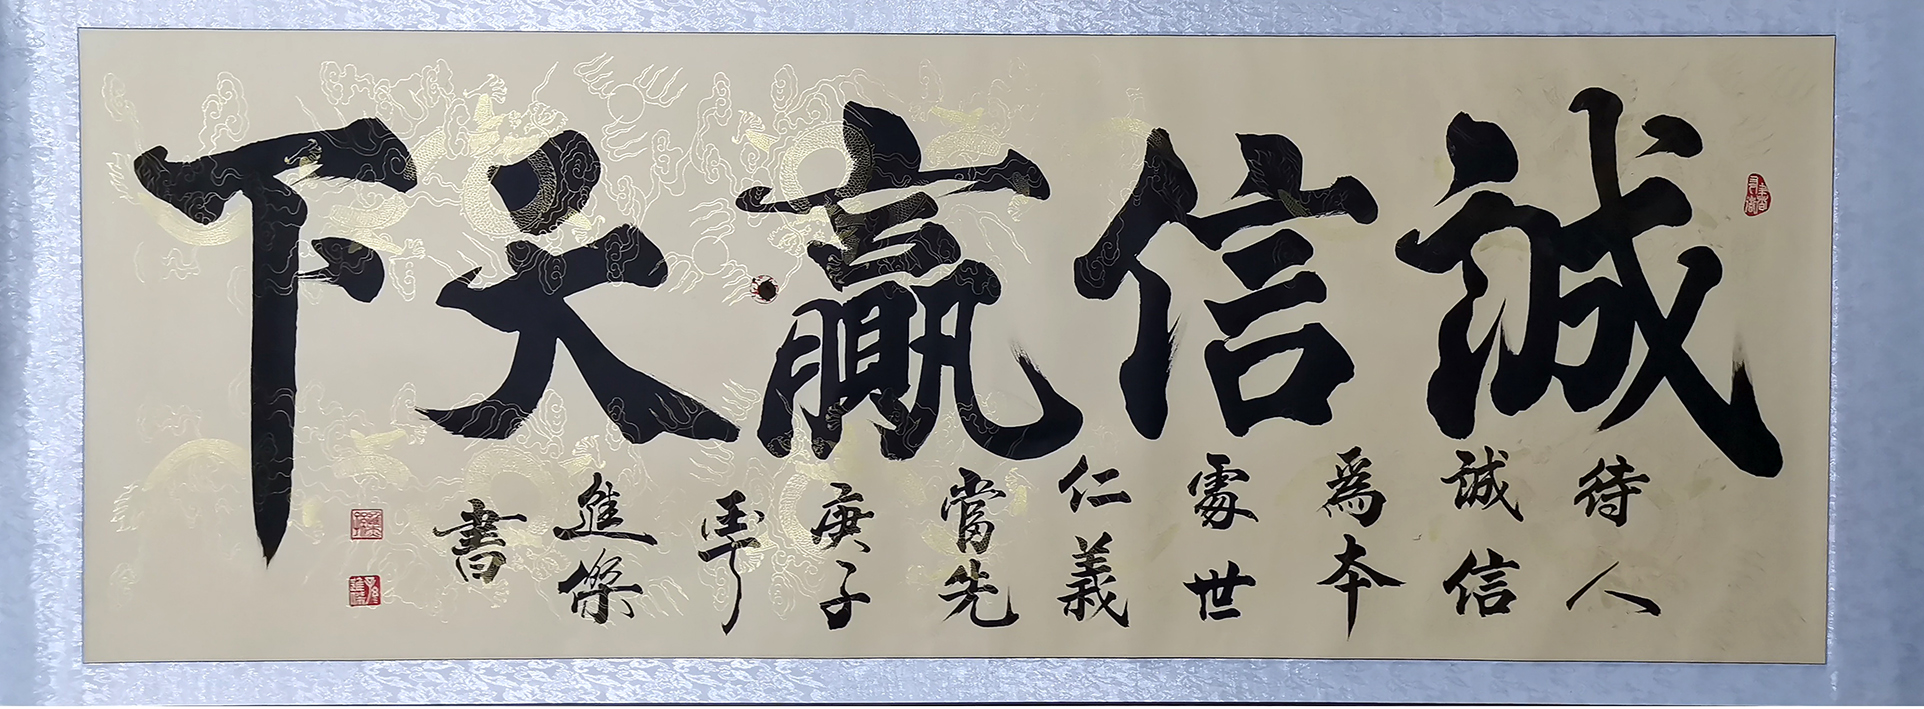 誠信贏天下
待人
誠信
為本
處世
仁義
當先
庚子
年
進傑
書